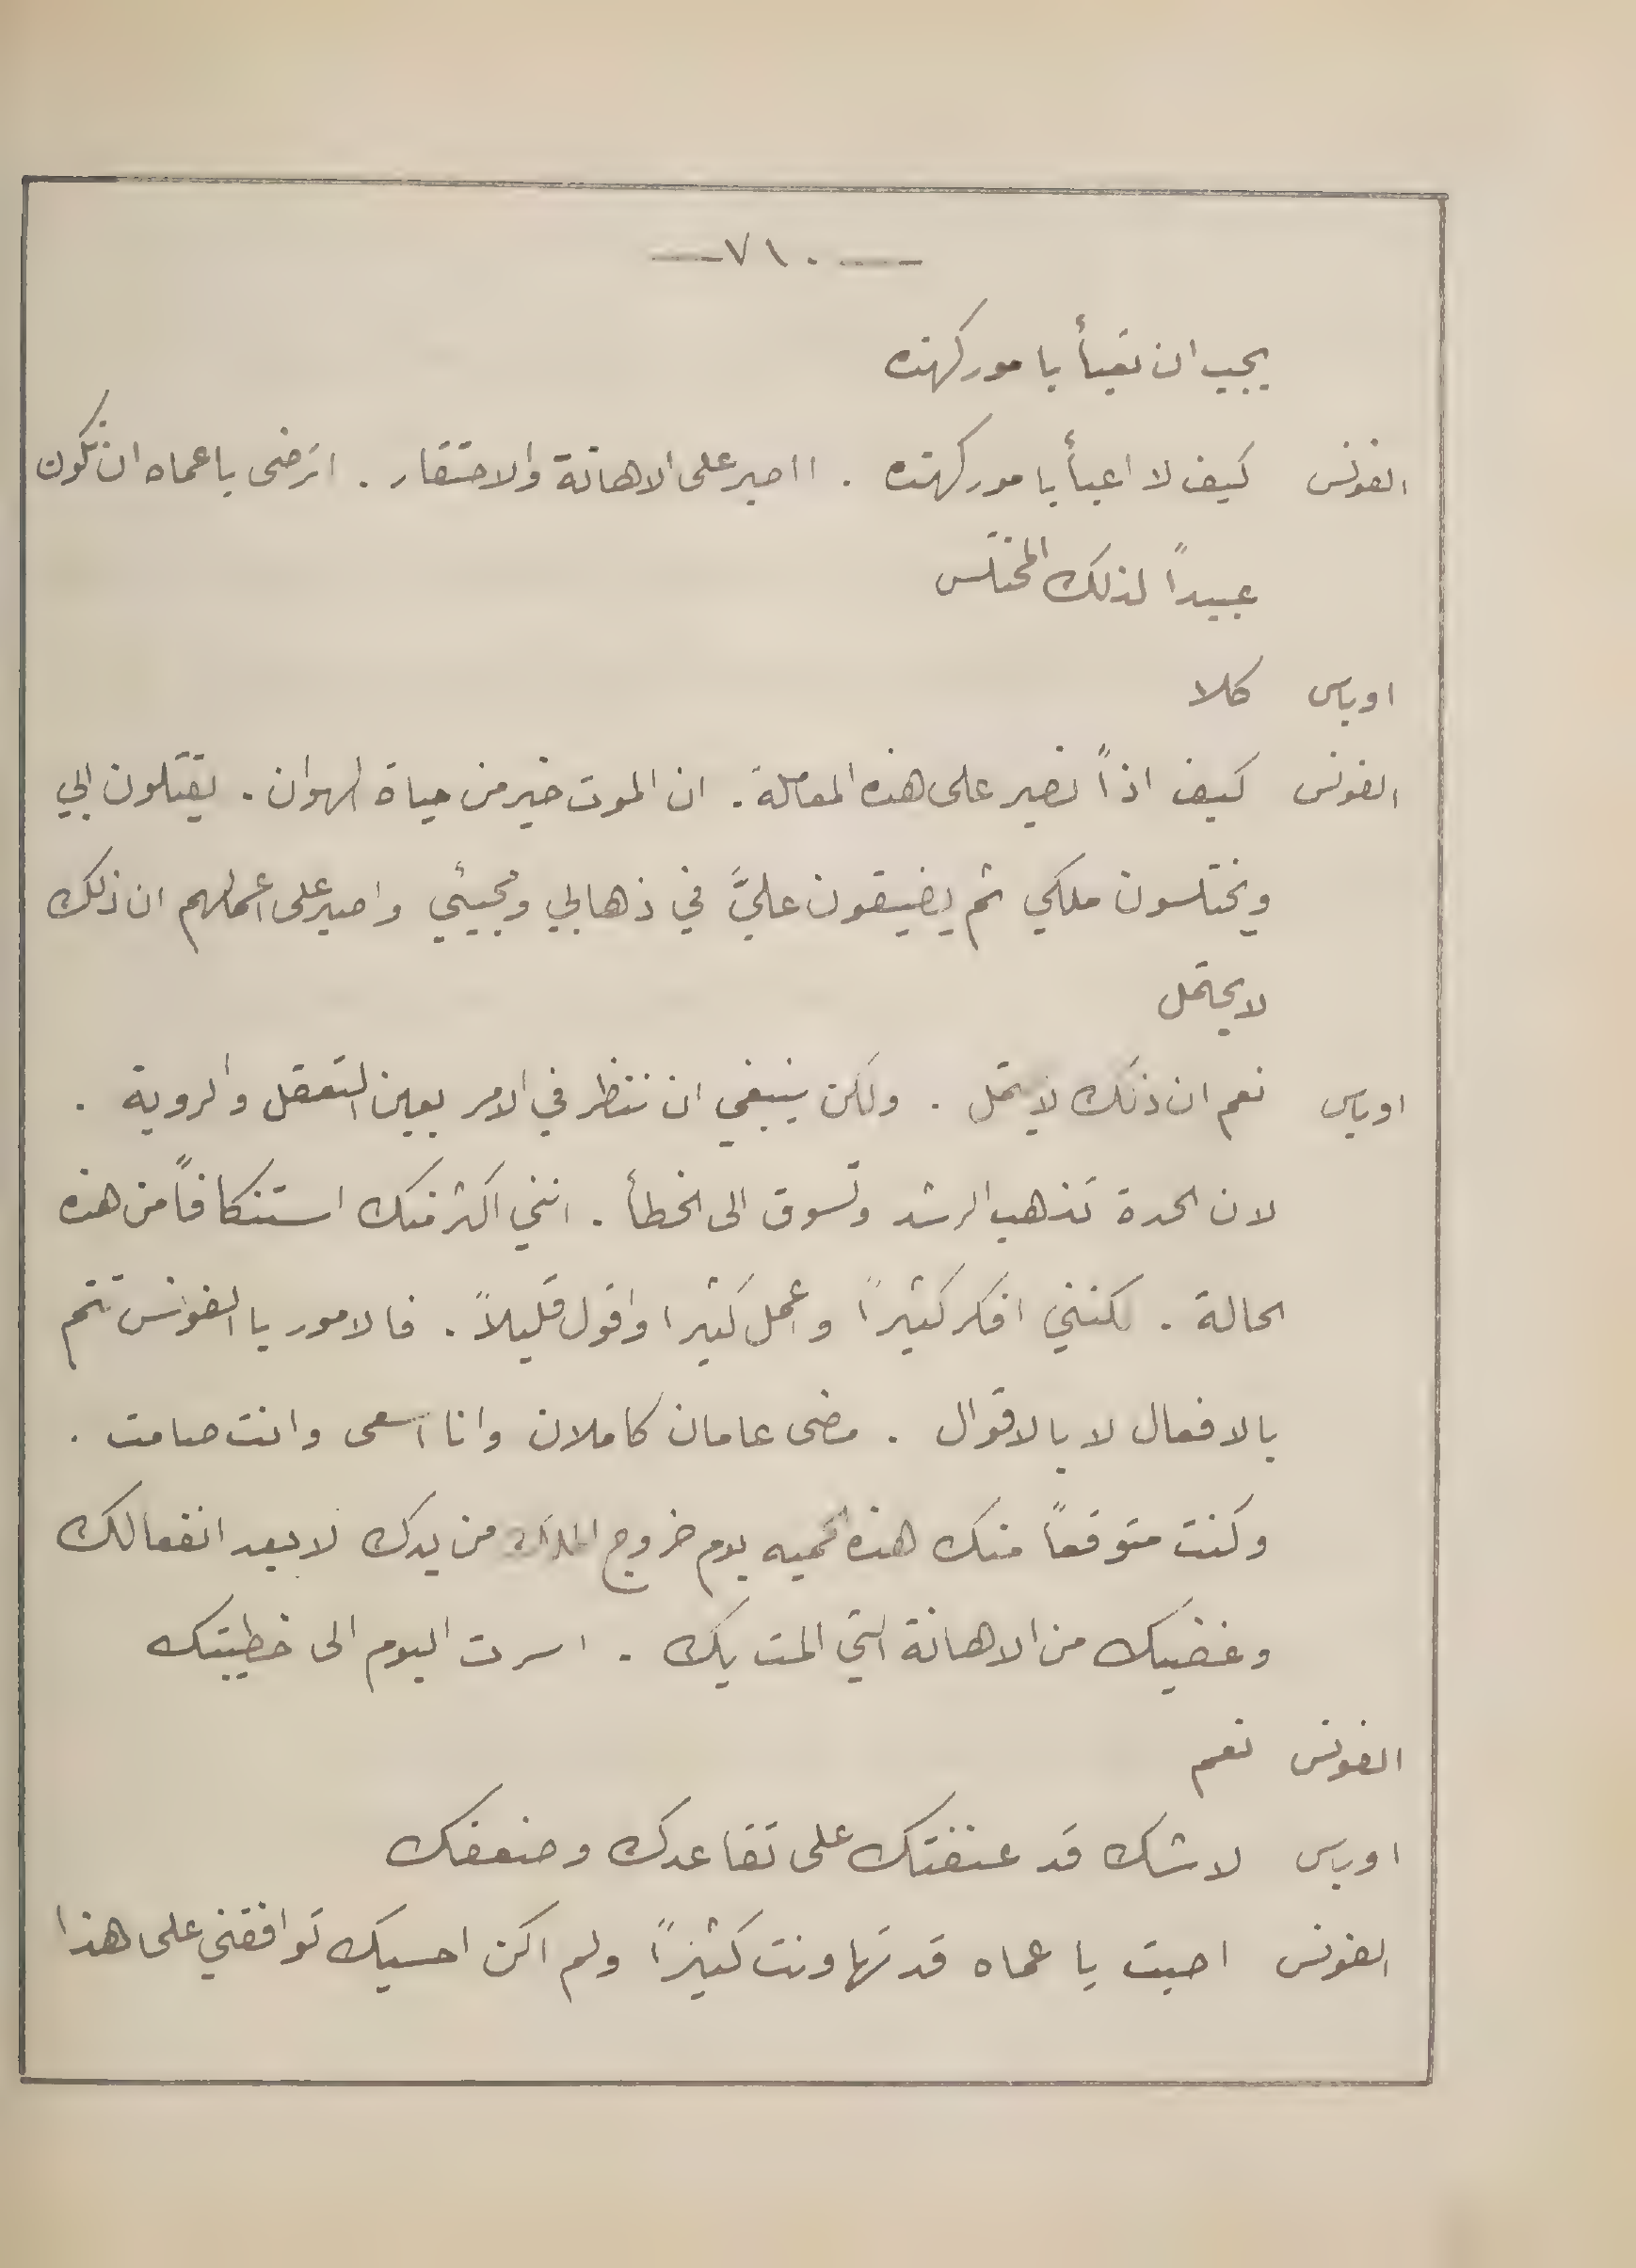 —٧١٠—
يجب ان تعبأ بامور كهذه
الفونس كيف لا اعبأ بامور كهذه . ااصبر على الاهانة والاحتقار . اترضى ياعماه ان نكون
عبيداً لذلك المختلس
اوباس كلا
الفونس كيف اذاً نصبر على هذه المعاملة . ان الموت خير من حياة الهوان . يقتلون ابي
ويختلسون ملكي ثم يضيقون عليَّ في ذهابي ومجيئي واصبر على اعمالهم ان ذلك
لايحتمل
اوباس نعم ان ذلك لايحتمل . ولكن ينبغي ان ننظر في الامر بعين التعقل والروية .
لان الحدة تذهب الرشد وتسوق الى الخطأ . انني اكثر منك استنكافاً من هذه
الحالة . لكنني افكر كثيراً واعمل كثيرا واقول قليلاً . فالامور يا الفونس تتم
بالافعال لا بالاقوال . مضى عامان كاملان وانا اسعى وانت صامت .
وكنت متوقعاً منك هذه الحميه يوم خروج من يدك لا بعد انفعالك
وغضبك من الاهانة التي المت بك . اسرت اليوم الى خطيبتك
الفونس نعم
اوباس لاشك قد عنفتك على تقاعدك وضعفك
الفونس اصبت يا عماه قد تهاونت كثيراً ولم اكن احسبك توافقني على هذا